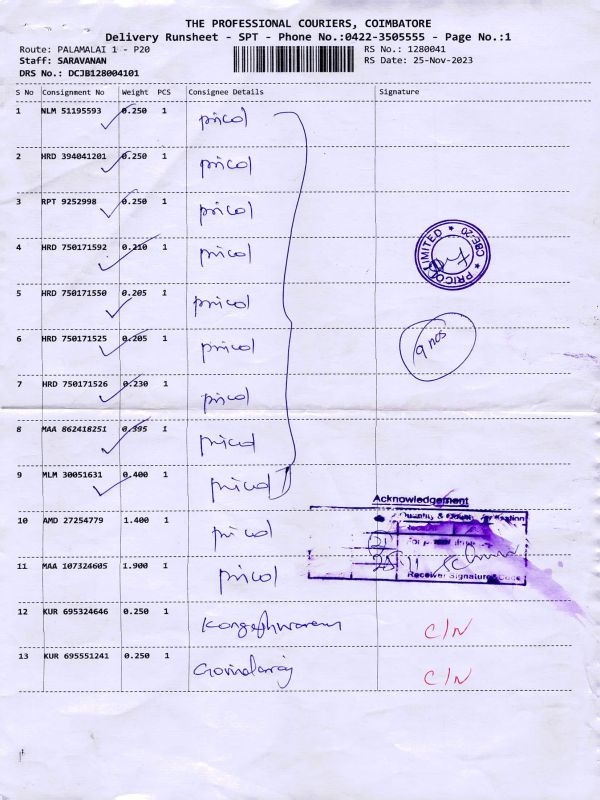 THE PROFESSIONAL COURIERS, COIMBATORE
Delivery Runsheet - SPT - Phone No.:0422-3505555 - Page No.:1
Route: PALAMALAI 1 - P20 RS No.: 1280041
Staff: SARAVANAN RS Date: 25-Nov-2023
DRS No.: DCJB128004101
S No Consignment No Weight PCS Consignee Details Signature
1 NLM 51195593 0.250 1 pricol
2 HRD 394041201 0.250 1 pricol
3 RPT 9252998 0.250 1 pricol
4 HRD 750171592 0.210 1 pricol
PRICOL LIMITED ★ CBE-20 ★
5 HRD 750171550 0.205 1 pricol
6 HRD 750171525 0.205 1 pricol
9 nos
7 HRD 750171526 0.230 1 pricol
8 MAA 862418251 0.395 1 pricol
9 MLM 30051631 0.400 1 pricol
Acknowledgement
10 AMD 27254779 1.400 1 pricol
Quantity &
25/11
11 MAA 107324605 1.900 1 pricol
Receiver Signature
12 KUR 695324646 0.250 1 C/N
13 KUR 695551241 0.250 1 Govindaraj C/N